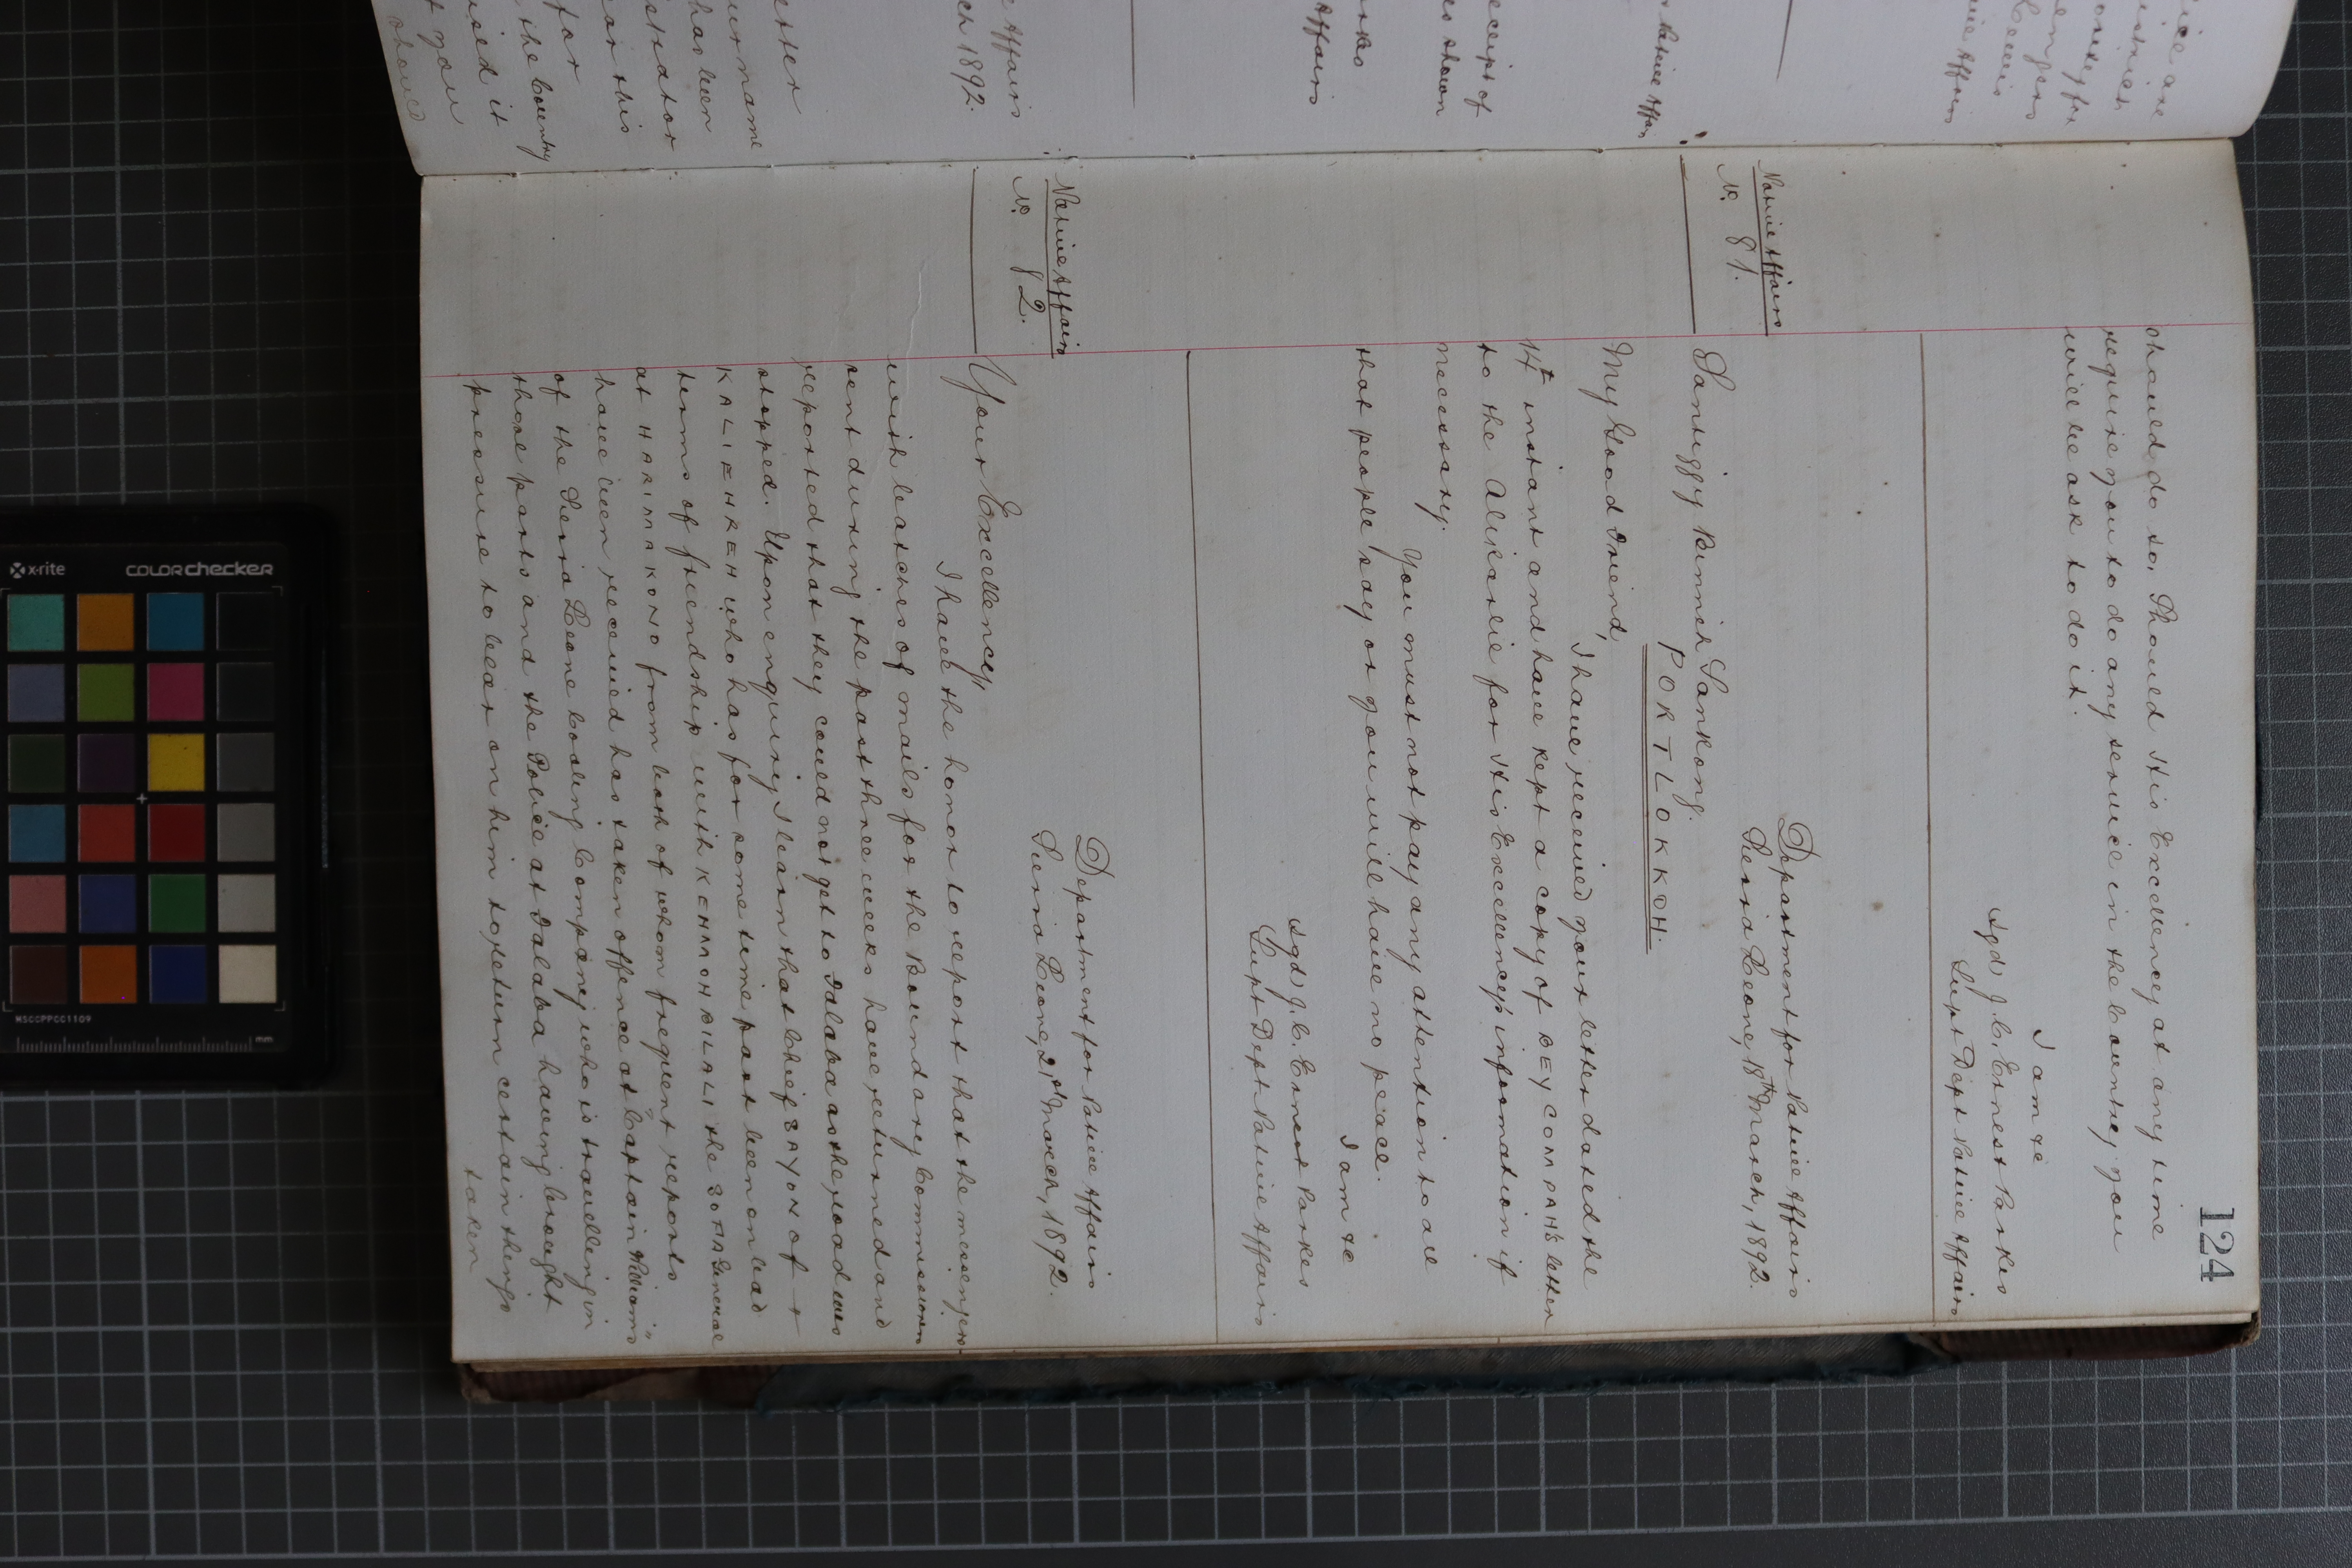 124
should do so. Should His Excellency at any time
require you to do any service in the Country you
will be ask to do it.
I am &c
Sgd) J. C. Ernest Parkes
Supt Dept Native Affairs
Native Affairs
No. 81.
Department for Native Affairs
Sierra Leone, 18th March, 1892.
Santiggy Bunnih Sankong.
PORT LOKKOH.
My Good Friend,
I have received your letter dated the
14th instant and have kept a copy of BEY COMPAH's letter
to the Alikarlie for His Excellency's information if
necessary.
You must not pay any attention to all
that people say or you will have no peace.
I am &c
Sgd) J. C. Ernest Parkes
Supt Dept Native Affairs
Native Affairs
No. 82.
Department for Native Affairs
Sierra Leone, 21st March, 1892.
Your Excellency,
I have the honor to report that the messengers
with batches of mails for the Boundary Commissioners
sent during the past three weeks have returned and
reported that they could not get to Falaba as the road was
stopped. Upon enquiry I learn that Chief SAYOH of
KALIEHREH who has for some time past been on bad
terms of friendship with KEHMOH BILALI the SOFA General
at HARIMAKONO from both of whom frequent reports
have been received has taken offence at "Captain Williams"
of the Sierra Leone Coaling Company who is travelling in
those parts and the Police at Falaba having brought
pressure to bear on him to return certain things
taken